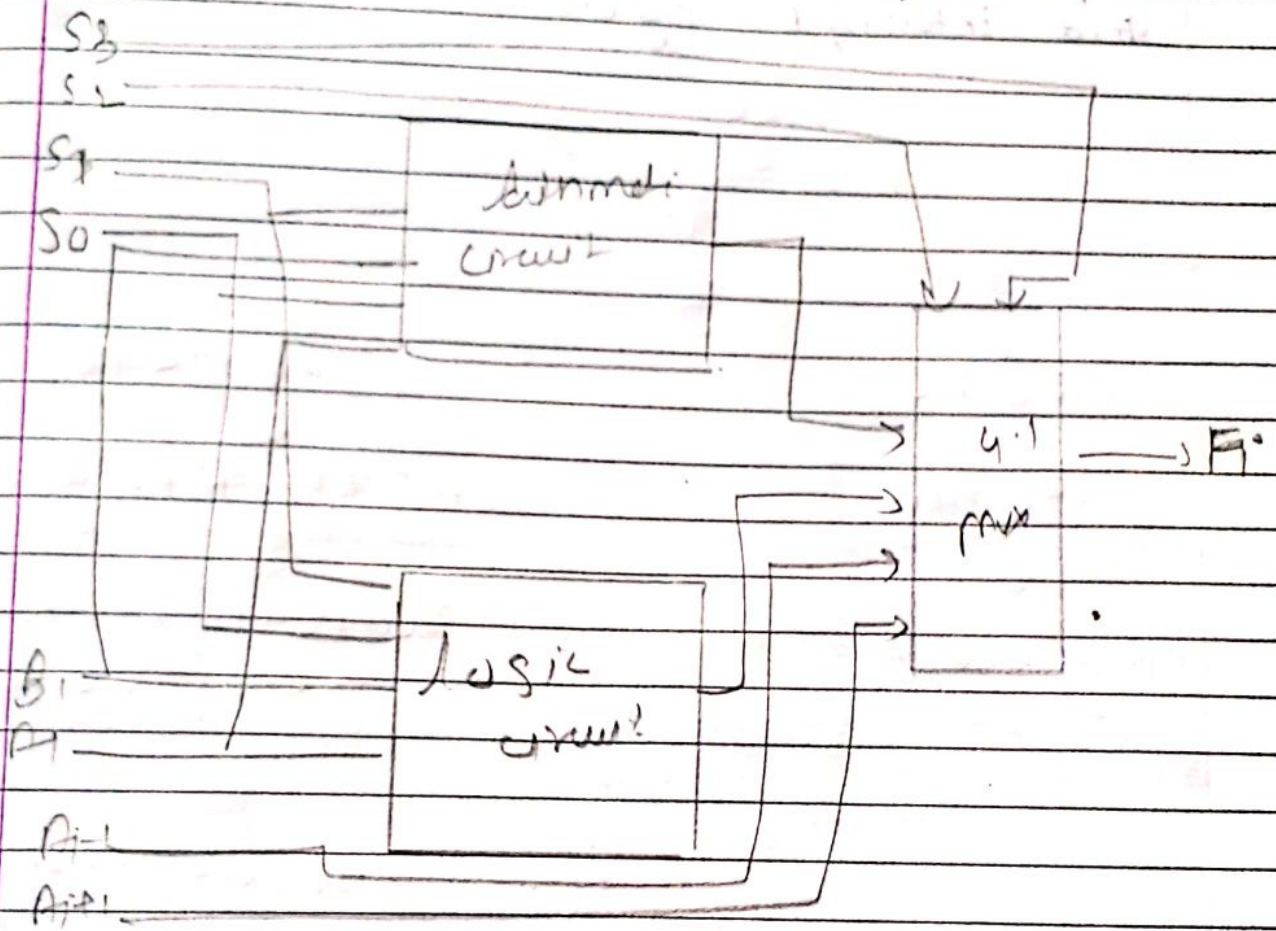 S3
S2
S1
S0
circuit
4:1
mux
Fi
Logic
circuit
Bi
Ai
Ai-1
Ai+1